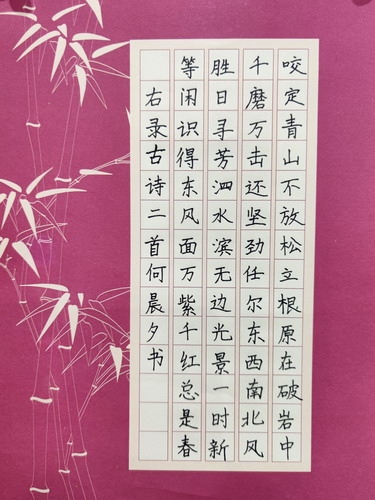 咬定青山不放松立根原在破岩中
千磨万击还坚劲任尔东西南北风
胜日寻芳泗水滨无边光景一时新
等闲识得东风面万紫千红总是春
右录古诗二首何晨夕书